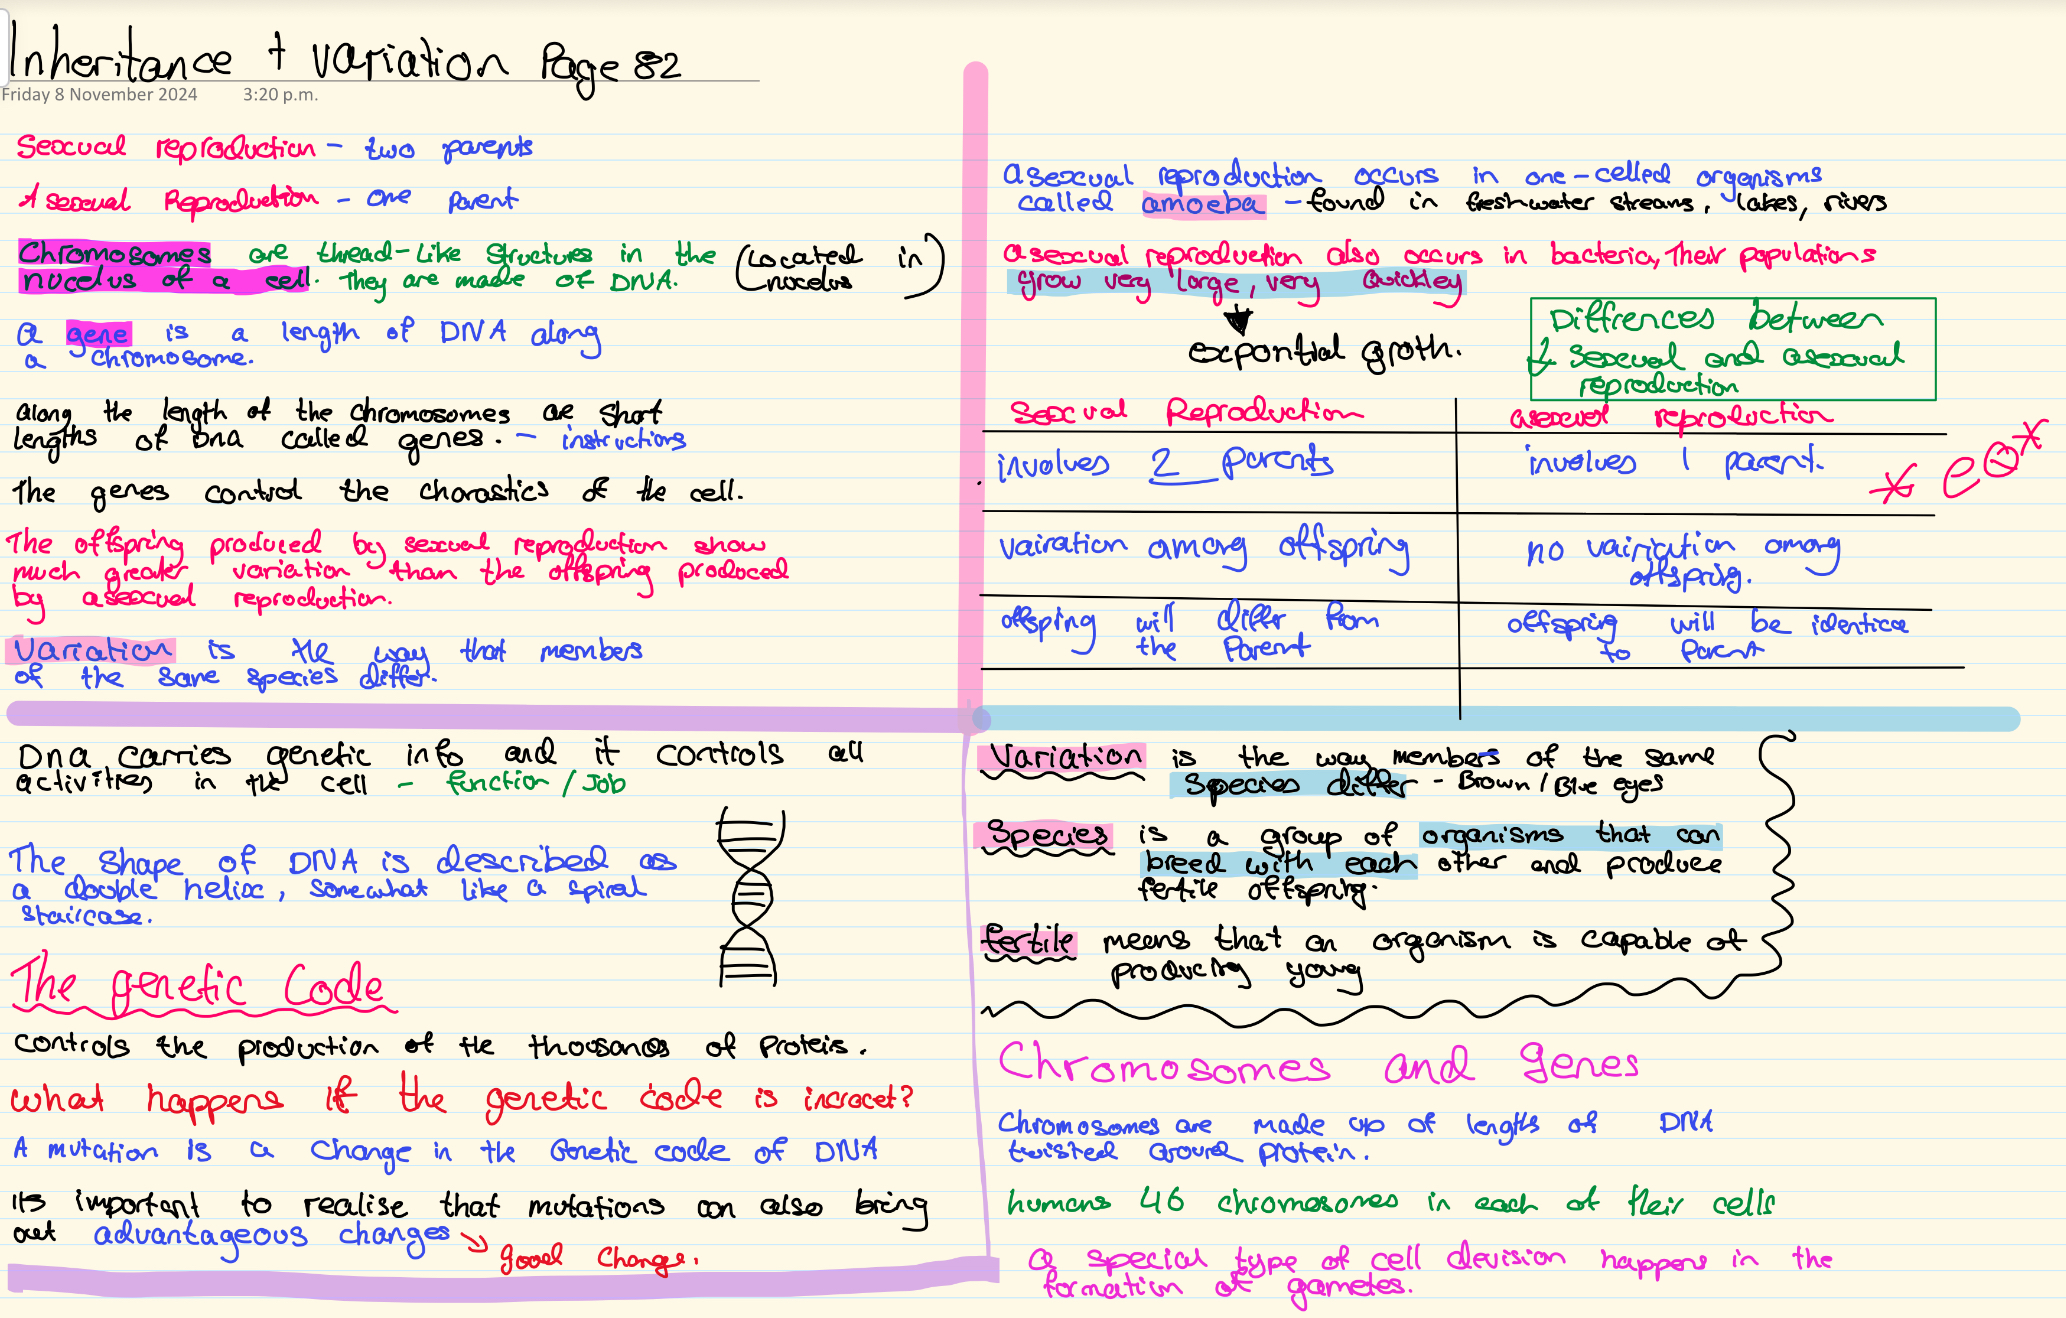 Inheritance + variation Page 82
Friday 8 November 2024 3:20 p.m.
Sexual reproduction - two parents
Asexual Reproduction - one parent
Chromosomes are thread-like structures in the
nucelus of a cell. They are made of DNA.
(Located in
nucelus)
a gene is a length of DNA along
a chromosome.
along the length of the chromosomes are short
lengths of Dna called genes. - instructions
The genes control the charastics of the cell.
The offspring produced by sexual reproduction show
much greater variation than the offspring produced
by asexual reproduction.
Variation is the way that members
of the same species differ.
asexual reproduction occurs in one-celled organisms
called amoeba - found in freshwater streams, lakes, rivers
asexual reproduction also occurs in bacteria, their populations
grow very large, very quickley
expontial groth.
Diffrences between
sexual and asexual
reproduction
Sexual Reproduction
asexual reproduction
involves 2 parents
involves 1 parent.
* eQ*
vairation among offspring
no vairiation among
offspring.
offspring will differ from
the parent
offspring will be identica
to parent
Dna carries genetic info and it controls all
activities in the cell - function / Job
The shape of DNA is described as
a double helix, somewhat like a spiral
staircase.
The genetic code
controls the production of the thousands of proteis.
what happens if the genetic code is incracet?
A mutation is a change in the Genetic code of DNA
its important to realise that mutations can also bring
out advantageous changes
good change.
Variation is the way members of the same
species differ - Brown / Blue eyes
Species is a group of organisms that can
breed with each other and produce
fertile offspring.
fertile means that an organism is capable of
producing young
Chromosomes and genes
Chromosomes are made up of lengths of DNA
twisted around protein.
humans 46 chromosones in each of their cells
a special type of cell devision happens in the
formation of gametes.